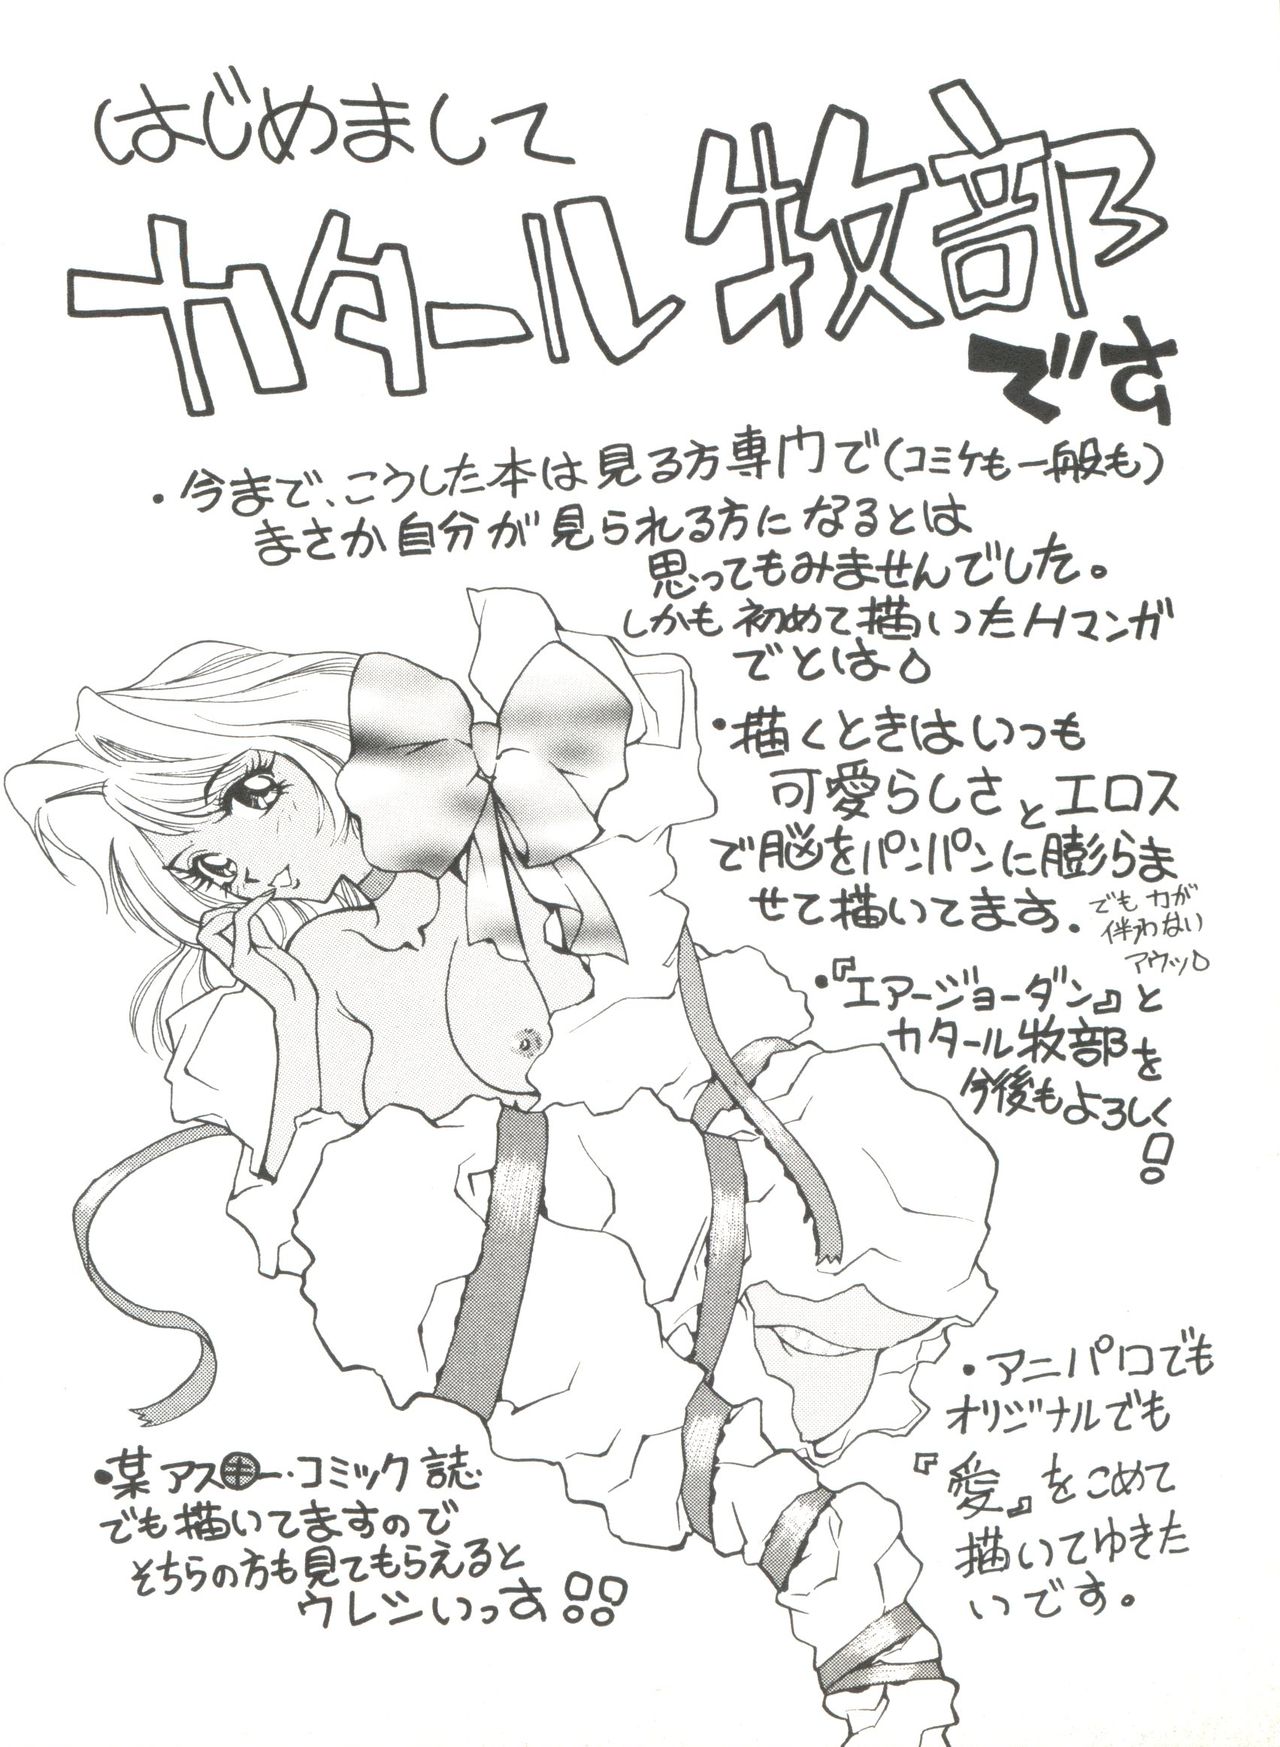 はじめまして
カタール牧部
です
・今まで、こうした本は見る方専門で(コミケも一般も)
まさか自分が見られる方になるとは
思ってもみませんでした。
しかも初めて描いたHマンガ
でとは
・描くときはいつも
可愛らしさとエロス
で脳をパンパンに膨らま
せて描いてます.
でも力が
伴わない
アウッ
・『エアージョーダン』と
カタール牧部を
今後もよろしく!
・アニパロでも
オリジナルでも
『愛』をこめて
描いてゆきた
いです。
・某アスキー・コミック誌
でも描いてますので
そちらの方も見てもらえると
ウレシいっす!!